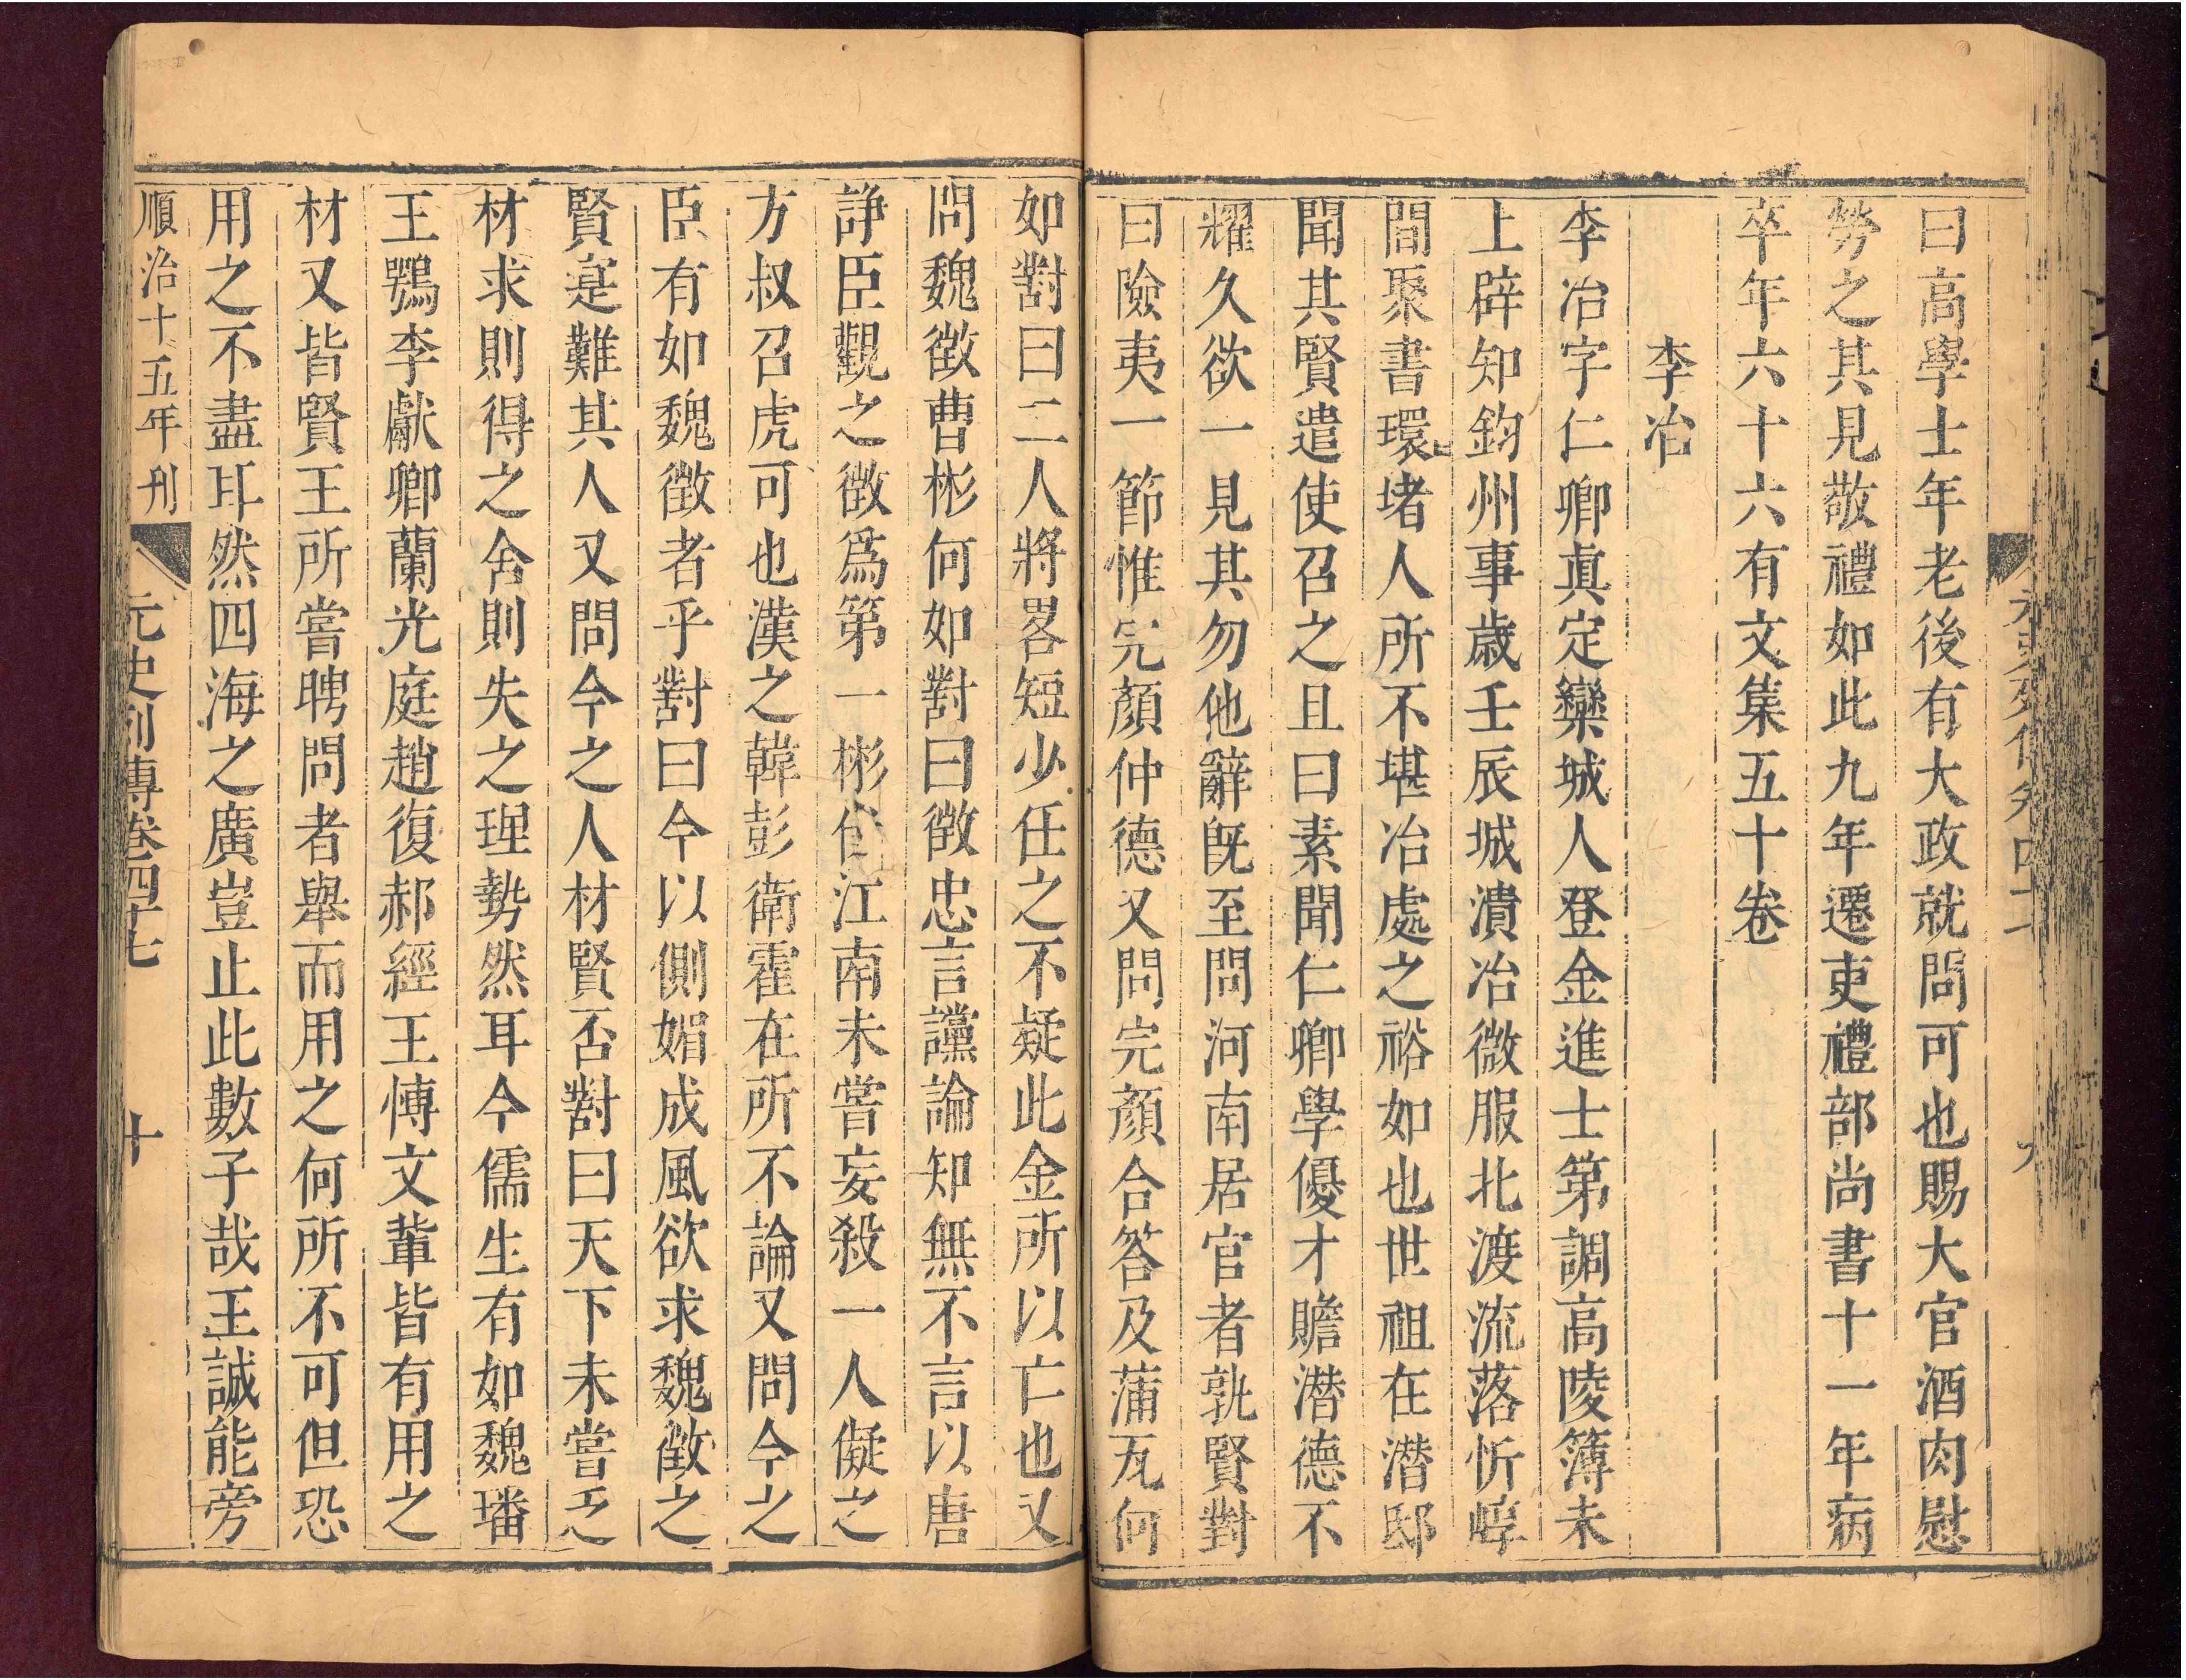 曰高學士年老後有大政就問可也賜大官酒肉慰
勞之其見敬禮如此九年遷吏禮部尚書十一年病
卒年六十六有文集五十卷
李冶
李冶字仁卿真定欒城人登金進士第調高陵簿未
上辟知鈞州事歲壬辰城潰冶微服北渡流落忻崞
間聚書環堵人所不堪冶處之裕如也世祖在潛邸
聞其賢遣使召之且曰素聞仁卿學優才贍潛德不
耀久欲一見其勿他辭旣至問河南居官者孰賢對
曰險夷一節惟完顏仲德又問完顏合答及蒲瓦何
如對曰二人將畧短少任之不疑此金所以亡也又
問魏徵曹彬何如對曰徵忠言讜論知無不言以唐
諍臣觀之徵爲第一彬伐江南未嘗妄殺一人儗之
方叔召虎可也漢之韓彭衛霍在所不論又問今之
臣有如魏徵者乎對曰今以側媚成風欲求魏徵之
賢寔難其人又問今之人材賢否對曰天下未嘗乏
材求則得之舍則失之理勢然耳今儒生有如魏璠
王鶚李獻卿蘭光庭趙復郝經王博文輩皆有用之
材又皆賢王所嘗聘問者舉而用之何所不可但恐
用之不盡耳然四海之廣豈止此數子哉王誠能旁
順治十五年刊 元史列傳卷四十七 十